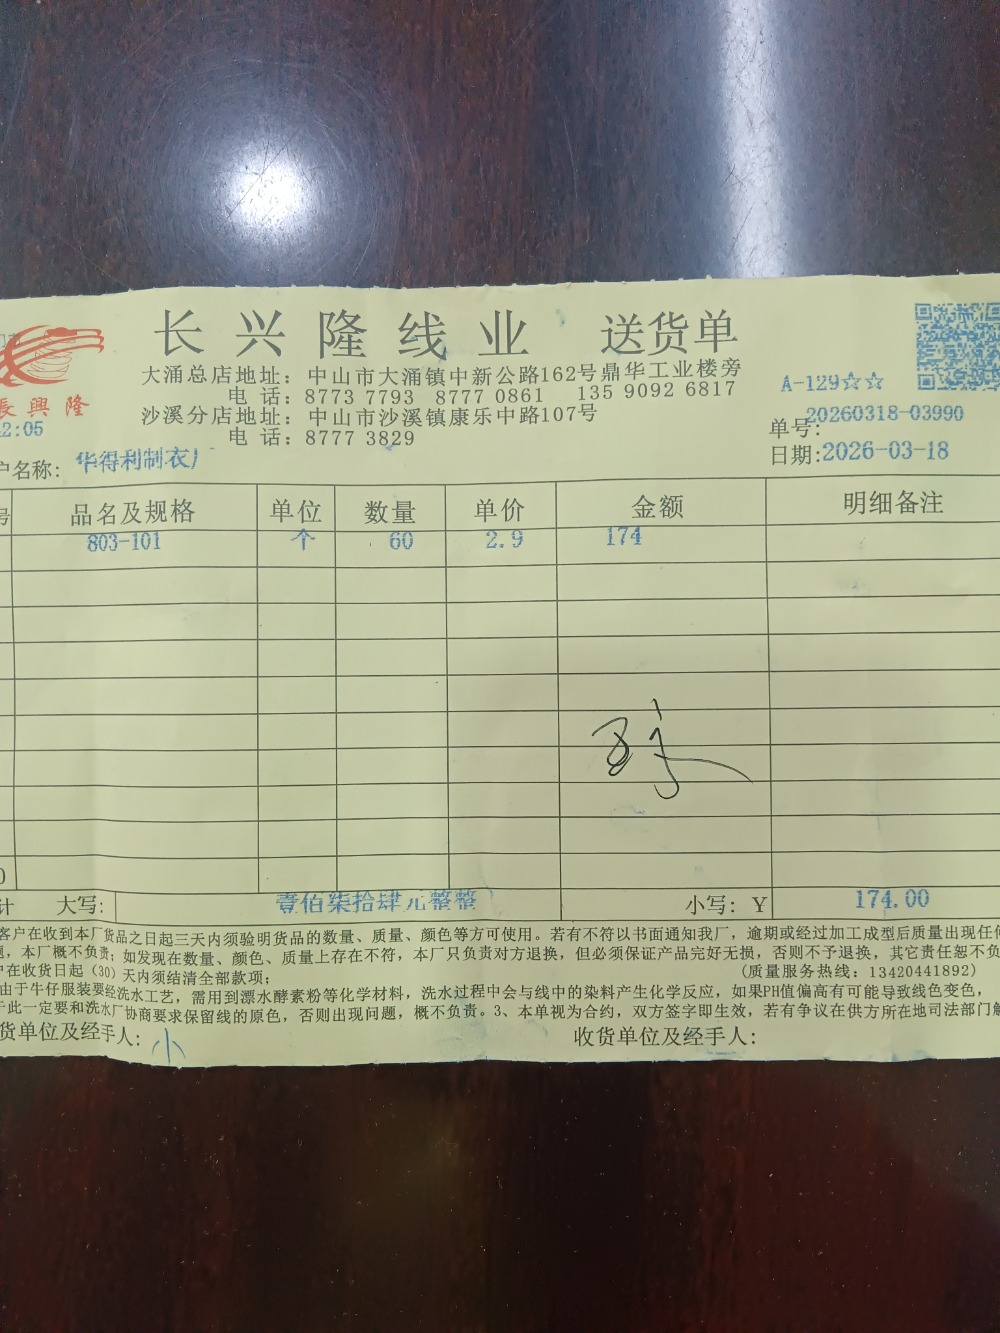 长兴隆线业 送货单
大涌总店地址：中山市大涌镇中新公路162号鼎华工业楼旁
电 话：8773 7793 8777 0861 135 9092 6817
A-129☆☆
沙溪分店地址：中山市沙溪镇康乐中路107号
電 話：8777 3829
長興隆
2:05
单号：20260318-03990
日期：2026-03-18
户名称：华得利制衣厂
号 品名及规格 单位 数量 单价 金额 明细备注
803-101 个 60 2.9 174
0
计 大写：壹佰柒拾肆元整整 小写：Y 174.00
客户在收到本厂货品之日起三天内须验明货品的数量、质量、颜色等方可使用。若有不符以书面通知我厂，逾期或经过加工成型后质量出现任何
题，本厂概不负责；如发现在数量、颜色、质量上存在不符，本厂只负责对方退换，但必须保证产品完好无损，否则不予退换，其它责任恕不负
户在收货日起（30）天内须结清全部款项； （质量服务热线：13420441892）
由于牛仔服装要经洗水工艺，需用到漂水酵素粉等化学材料，洗水过程中会与线中的染料产生化学反应，如果PH值偏高有可能导致线色变色，
于此一定要和洗水厂协商要求保留线的原色，否则出现问题，概不负责。3、本单视为合约，双方签字即生效，若有争议在供方所在地司法部门解
货单位及经手人：小 收货单位及经手人：